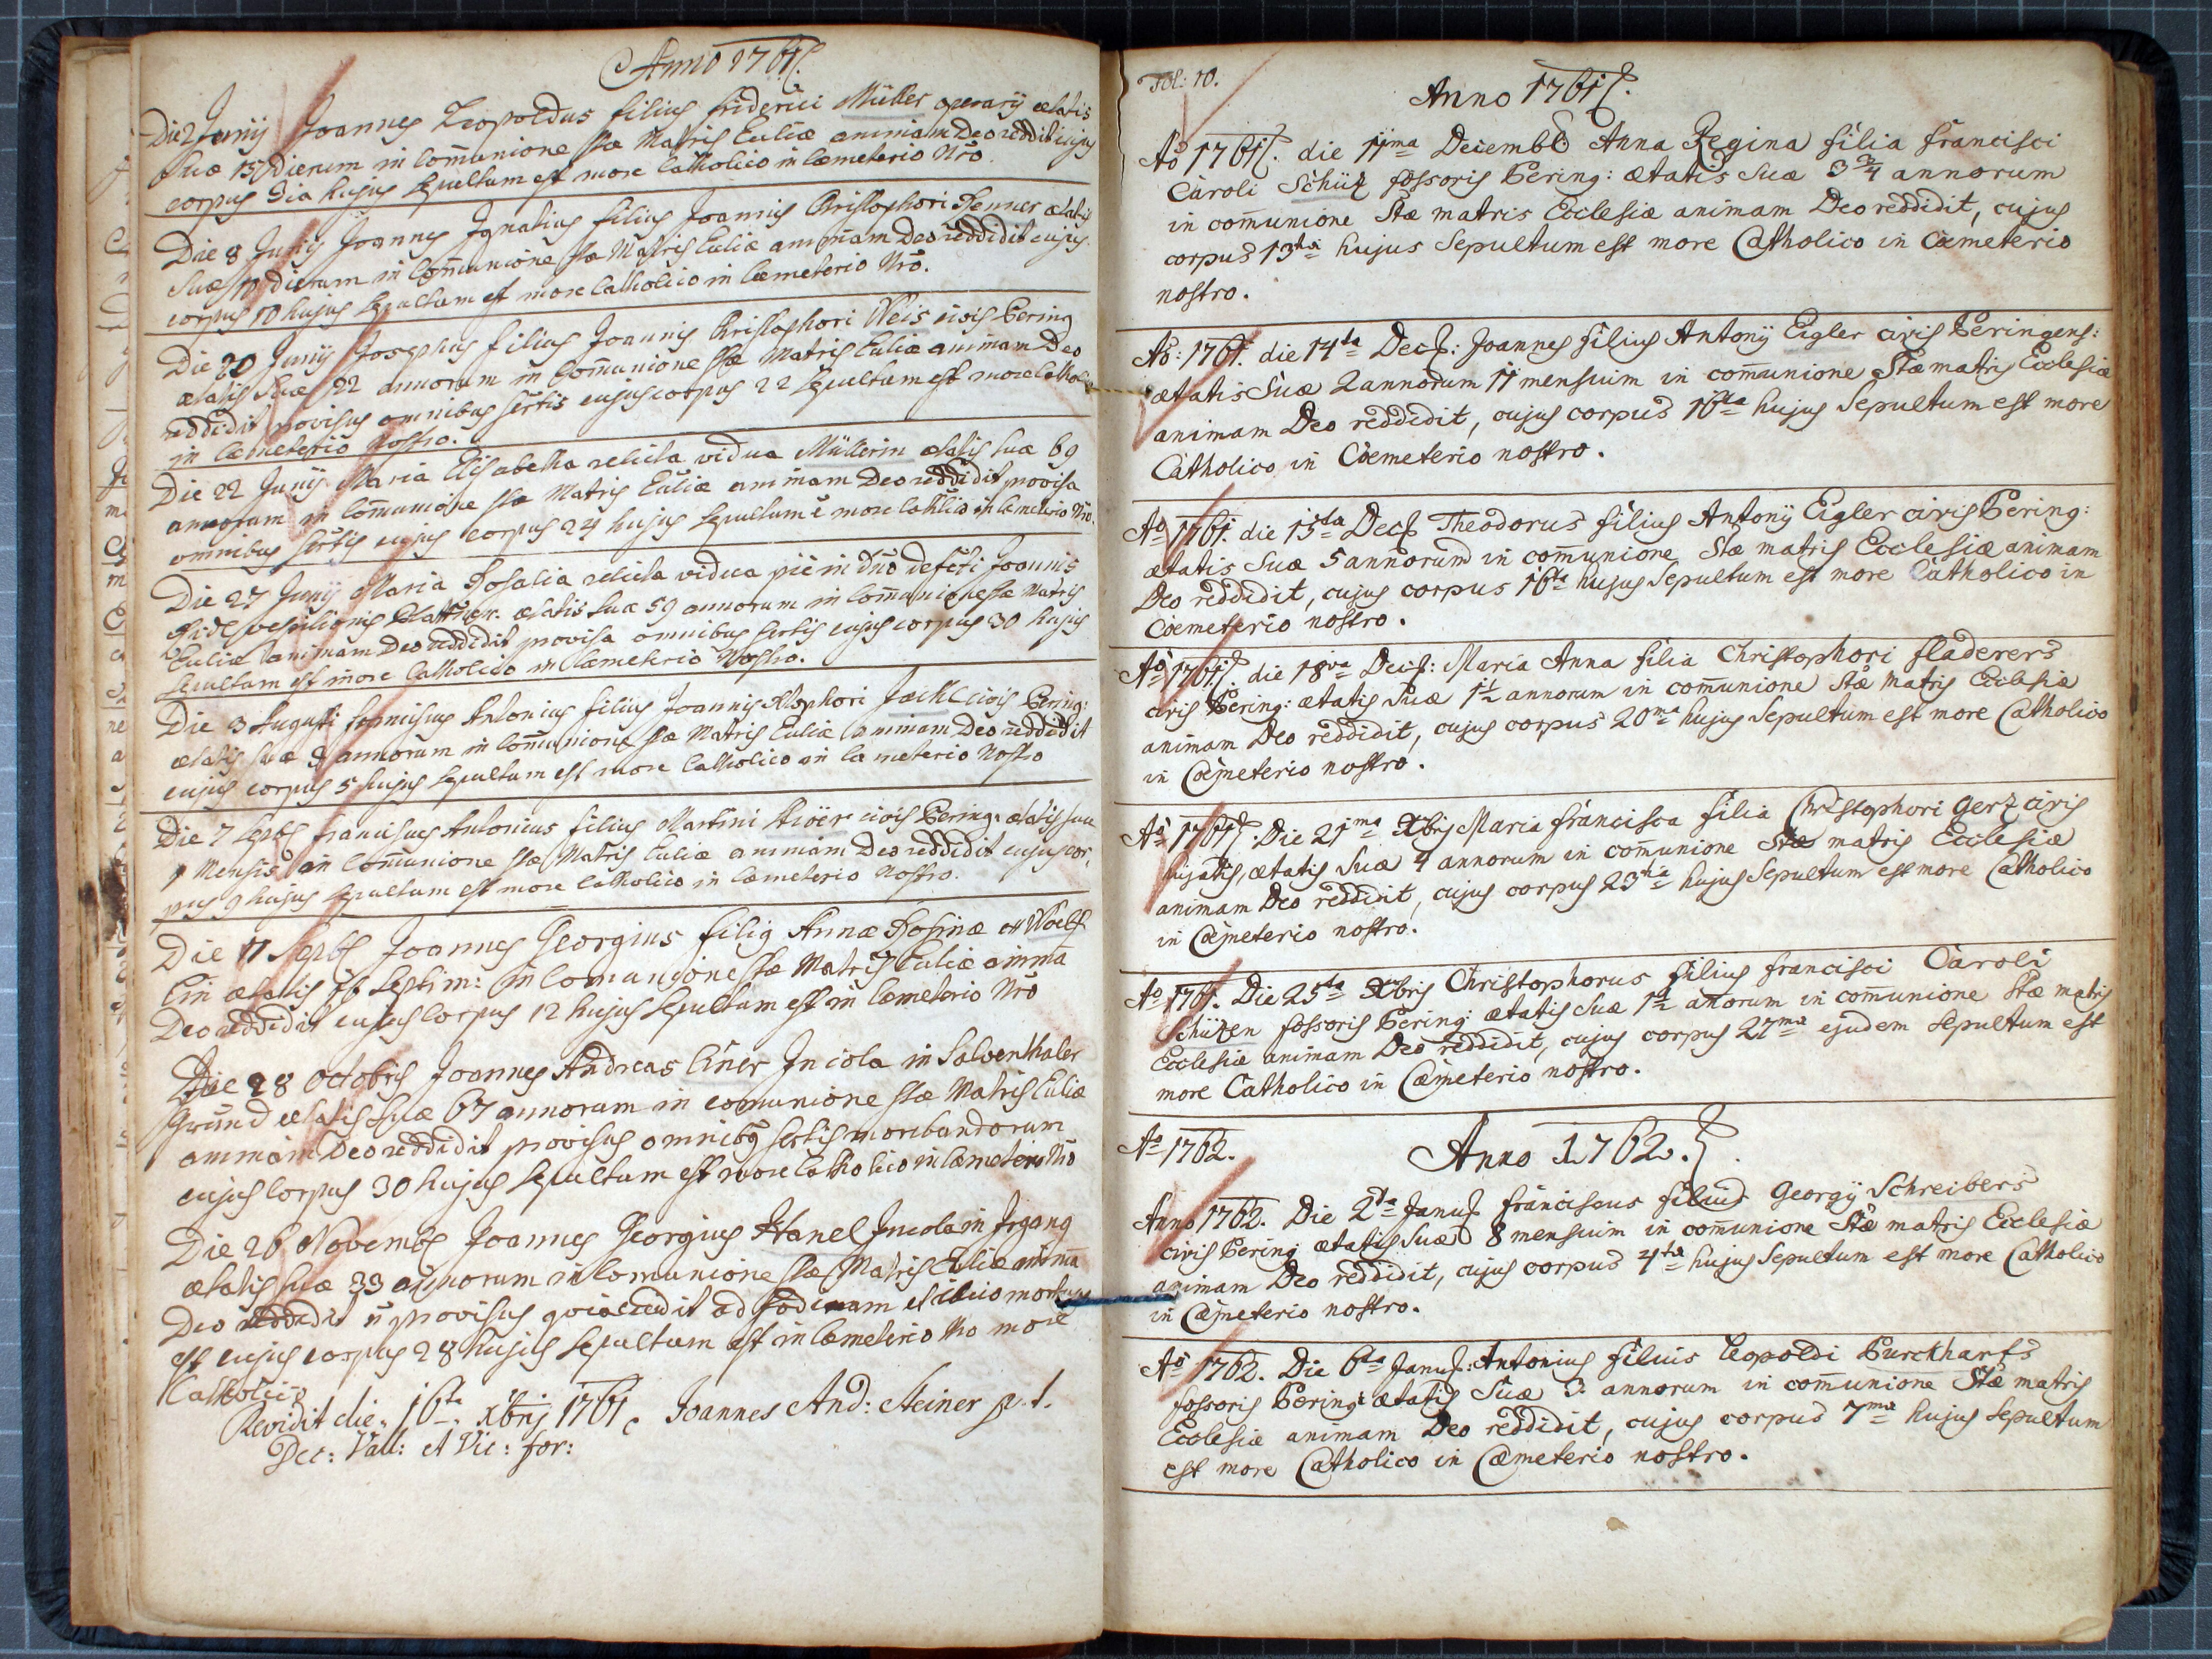 Anno 1761.
Die 2 Junij Joannes Leopoldus filius friderici Müller operarij ætatis
suæ 15 Dierum in Com̄unione stæ Matris Ecc̄liæ animam Deo reddidit cujus
corpus 3ia hujus sepultum est more Catholico in Cœmeterio Nr̄o.
Die 8 Junij Joannes Ignatius filius Joannis Christophori Renner ætatis
suæ dierum in Com̄unione stæ Matris Ecc̄liæ animam Deo reddidit cujus
corpus 10 hujus sepultum est more Catholico in Cœmeterio Nr̄o.
Die 20 Junij Josephus filius Joannis Christophori Weis civis Bering
ætatis suæ 22 annorum in Com̄unione stæ Matris Ecc̄liæ animam Deo
reddidit provisus omnibus sc̄rtis cujus corpus 22 sepultum est more Cathol
in Cœmeterio Nostro.
Die 22 Junij Maria Elisabetha relicta vidua Müllerin ætatis suæ 69
annorum in Com̄unione stæ Matris Ecc̄liæ animam Deo reddidit provisa
omnibus sc̄rtis cujus corpus 24 hujus sepultum ē more Cathlico in Cœmeterio Nr̄o.
Die 27 Junij Maria Rosalia relicta vidua piè in dn̄o defc̄ti Joannis
vespilionis Plattner. ætatis suæ 59 annorum in Com̄unione stæ Matris
Ecc̄liæ animam Deo reddidit provisa omnibus sc̄rtis cujus corpus 30 hujus
sepultum est more Catholico in Cœmeterio Nostro.
Die 3 Augusti franciscus Antonius filius Joannis Xstophori civis Bering:
ætatis suæ annorum in Com̄unione stæ Matris Ecc̄liæ animam Deo reddidit
cujus corpus 5 hujus sepultum est more Catholico in Cœmeterio Nostro
Die 7 Septbs franciscus Antonius filius Martini civis Bering. ætatis suæ
1 Mensis in Com̄unione stæ Matris Ecc̄liæ animam Deo reddidit cujus cor-
pus 9 hujus sepultum est more Catholico in Cœmeterio Nostro.
Die 11 Septbs Joannes Georgius filiꝯ Annæ Rosinæ Woelf
lin ætatis Septim: in Com̄unione stæ Matris Ecc̄liæ anim̄a
Deo reddidit cujus Corpus 12 hujus sepultum est in Cœmeterio Nr̄o
Die 28 Octobris Joannes Andreas Einer Incola in Salventhaler
Grund ætatis suæ 67 annorum in com̄unione stæ Matris Ecc̄liæ
animam Deo reddidit provisus omnibꝯ sc̄rtis moribundorum
cujus Corpus 30 hujus sepultum est more Catholico in Cœmeterio Nr̄o
Die 26 Novembs Joannes Georgius Hanel Incola in Irgang
ætatis suæ 33 annorum in Com̄unione stæ Matris Ecc̄liæ anim̄a
Deo reddidit n̄ provisus qvia cecidit ad fodinam et illico mortuus
est cujus corpus 28 hujus sepultum est in Cœmeterio Nr̄o more
Catholico
Revidit die 16ta Xbrij 1761. Joannes And: Steiner p. t.
Dec: Vall: et Vic: for:
Fol: 10.
Anno 1761.
Aō 1761. die 11ma Decembr Anna Regina filia francisci
Caroli Schüz fossoris Bering: ætatis suæ 3 3/4 annorum
in com̄unione Stæ matris Ecclesiæ animam Deo reddidit, cujus
corpus 13tia hujus Sepultum est more Catholico in Cœmeterio
nostro.
Aō: 1761. die 14ta Dec: Joannes filius Antonij Eigler civis Beringens:
ætatis Suæ 2 annorum 11 mensium in com̄unione Stæ matris Ecclesiæ
animam Deo reddidit, cujus corpus 16ta hujus Sepultum est more
Catholico in Cœmeterio nostro.
Aō 1761. die 15ta Dec Theodorus filius Antonij Eigler civis Bering:
ætatis Suæ 5 annorum in com̄unione Stæ matris Ecclesiæ animam
Deo reddidit, cujus corpus 16ta hujus Sepultum est more Catholico in
Cœmeterio nostro.
Aō 1761. die 18va Dec: Maria Anna filia Christophori fladerers
civis Bering: ætatis suæ 1 1/2 annorum in com̄unione Stæ Matris Ecclesiæ
animam Deo reddidit, cujus corpus 20ma hujus Sepultum est more Catholico
in Cœmeterio nostro.
Aō 1761. Die 21ma Xbris Maria francisca filia Christophori Gerz civis
hujatis, ætatis suæ 4 annorum in com̄unione Stæ matris Ecclesiæ
animam Deo reddidit, cujus corpus 23tia hujus Sepultum est more Catholico
in Cœmeterio nostro.
Aō 1761. Die 25ta Xbris Christophorus filius francisci Caroli
Schüzen fossoris Bering: ætatis suæ 1 1/2 an̄orum in com̄unione Stæ matris
Ecclesiæ animam Deo reddidit, cujus corpus 27ma ejusdem sepultum est
more Catholico in Cœmeterio nostro.
Aō 1762.
Anno 1762.
Anno 1762. Die 2da Janu: franciscus filius Georgij Schreibers
civis Bering: ætatis suæ 8 mensium in com̄unione Stæ matris Ecclesiæ
animam Deo reddidit, cujus corpus 4ta hujus Sepultum est more Catholico
in Cœmeterio nostro.
Aō 1762. Die 6ta Janu: Antonius filius Leopoldi Burckharts
fossoris Bering: ætatis Suæ 3 annorum in com̄unione Stæ matris
Ecclesiæ animam Deo reddidit, cujus corpus 7ma hujus sepultum
est more Catholico in Cœmeterio nostro.